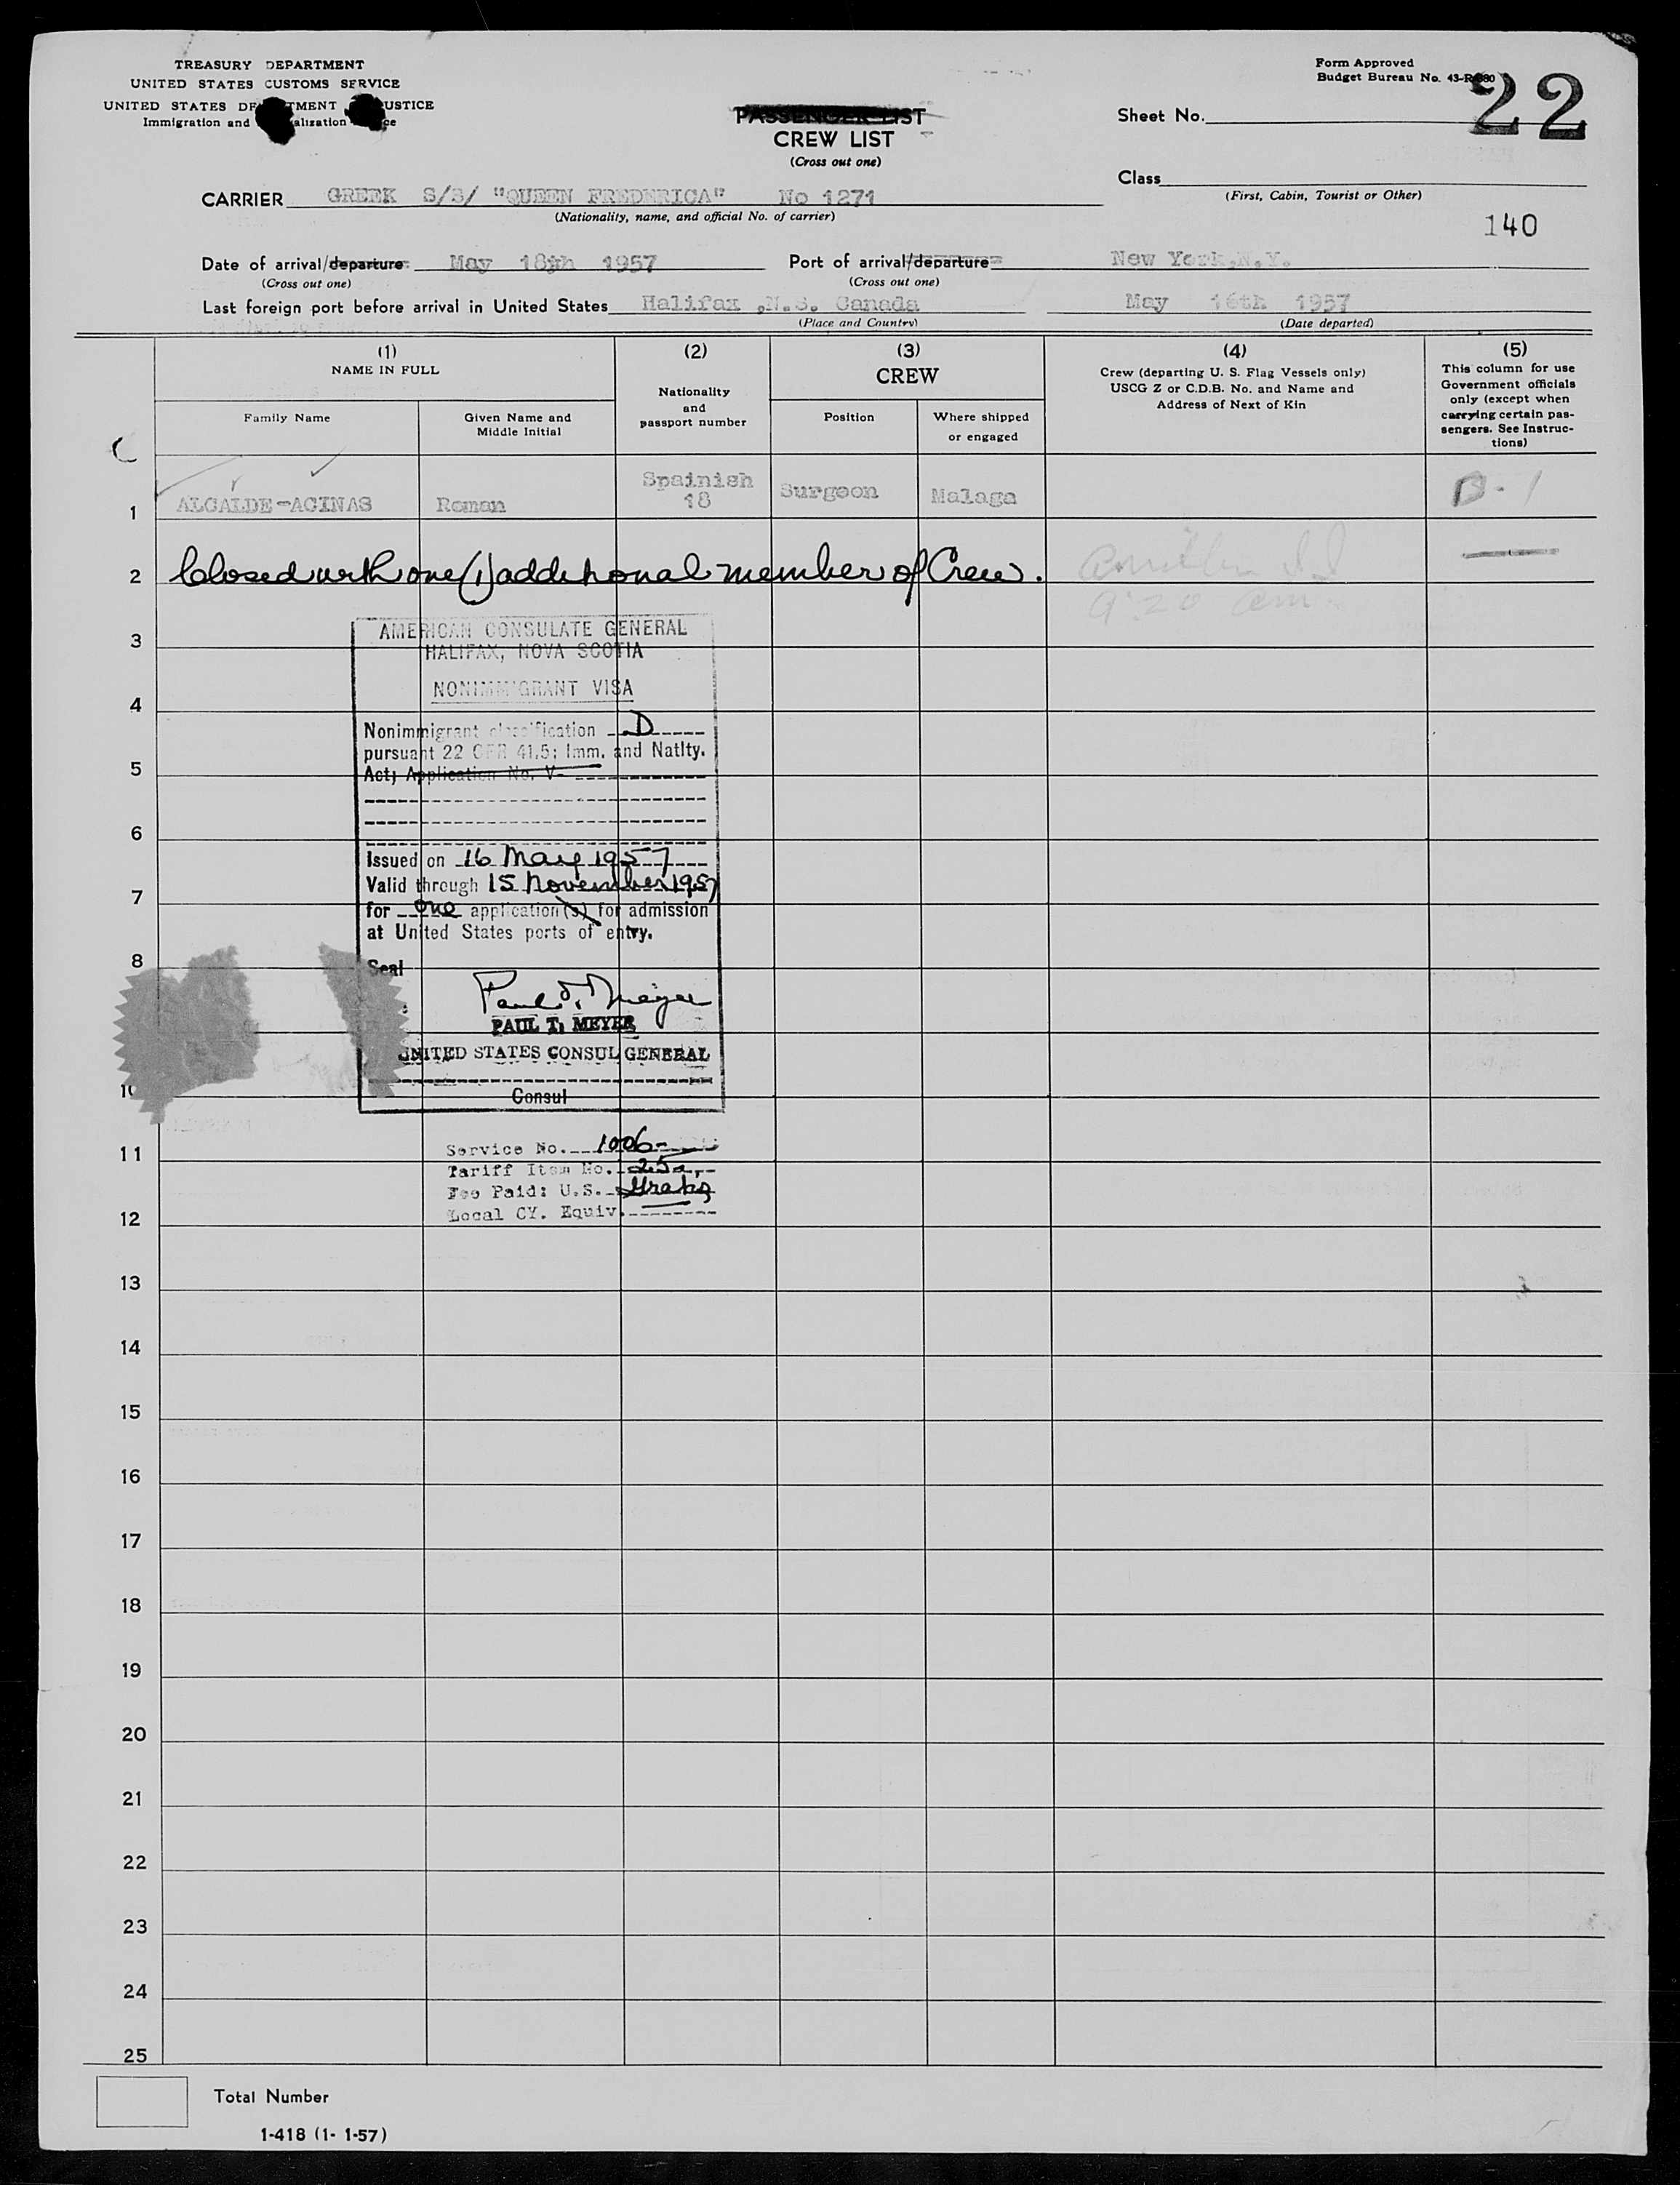 TREASURY DEPARTMENT
UNITED STATES CUSTOMS SERVICE
UNITED STATES DE TMENT USTICE
Immigration and alization ce
Form Approved
Budget Bureau No. 43-R
22
PASSENGER LIST
CREW LIST
(Cross out one)
Sheet No.
Class
(First, Cabin, Tourist or Other)
CARRIER GREEK S/S/ "QUEEN FREDERICA" No 1271
(Nationality, name, and official No. of carrier)
140
Date of arrival/departure May 18th 1957 Port of arrival/departure New York,N.Y.
(Cross out one) (Cross out one)
Last foreign port before arrival in United States Halifax ,N.S. Canada May 16th 1957
(Place and Country) (Date departed)
(1)
NAME IN FULL
Family Name
Given Name and
Middle Initial
(2)
Nationality
and
passport number
(3)
CREW
Position
Where shipped
or engaged
(4)
Crew (departing U. S. Flag Vessels only)
USCG Z or C.D.B. No. and Name and
Address of Next of Kin
(5)
This column for use
Government officials
only (except when
carrying certain pas-
sengers. See Instruc-
tions)
1 ALCALDE-ACINAS Roman Spainish 18 Surgeon Malaga B-1
2 Closed with one (1) additional member of Crew.
9:20 am
AMERICAN CONSULATE GENERAL
3
HALIFAX, NOVA SCOTIA
NONIMMIGRANT VISA
4
Nonimmigrant classification D
pursuant 22 CFR 41.5; Imm. and Natlty.
5
Act; Application No. V-
6
Issued on 16 May 1957
Valid through 15 November 1957
7
for one application(s) for admission
at United States ports of entry.
8
Seal
Paul T. Meyer
PAUL T. MEYER
UNITED STATES CONSUL GENERAL
10
Consul
Service No. 1006-
11
Tariff Item No. 25a,-
Fee Paid: U.S. Gratis
Local CY. Equiv.
12
13
14
15
16
17
18
19
20
21
22
23
24
25
Total Number
1-418 (1- 1-57)